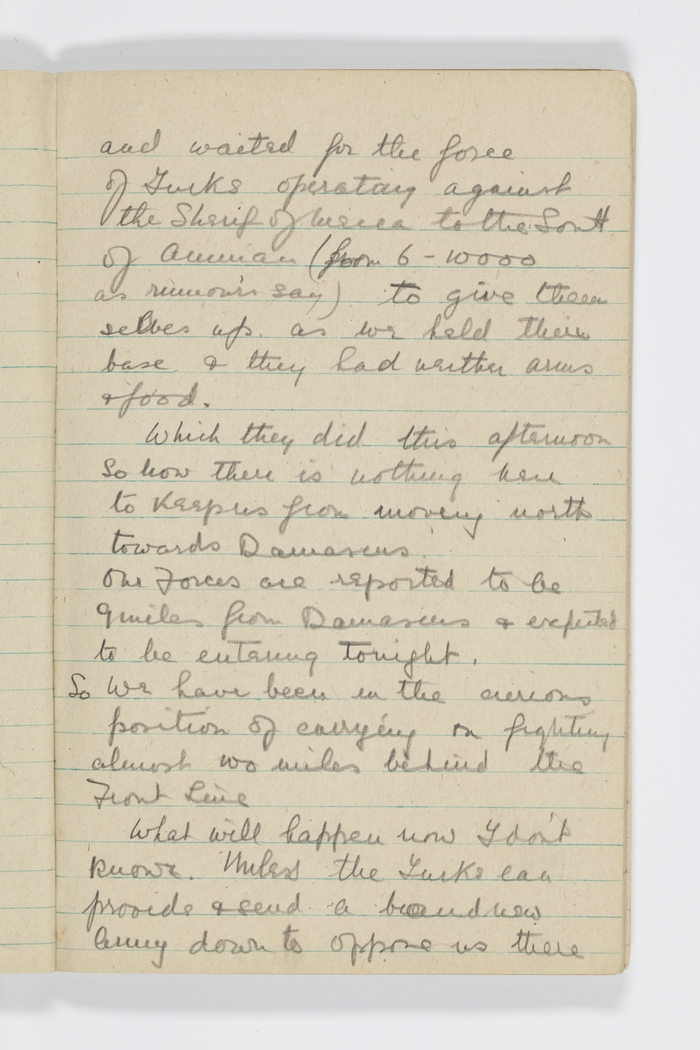 and waited for the force
of Turks operating against
the Sherif of Mecca to the South
of Amman (from 6 - 10000
as rumours say) to give them
selves up. as we held their
base & they had neither arms
& food.
Which they did this afternoon
So now there is nothing here
to Keep us from moving north
towards Damascus.
Our Forces are reported to be
9 miles from Damascus & expected
to be entering tonight.
So We have been in the curious
position of carrying on fighting
almost 100 miles behind the
Front Line
What will happen now I don't
know. Unless the Turks can
provide & send a brand new
Army down to oppose us there